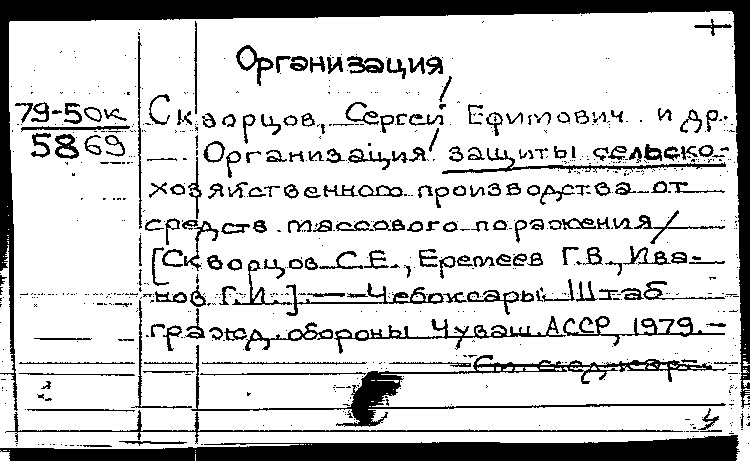 Организация
79-50к
5869
Скворцов, Сергей Ефимович и др.
— Организация защиты сельско-
хозяйственного производства от
средств массового поражения/
[Скворцов С.Е., Еремеев Г.В., Ива-
нов Г.И.] — Чебоксары: Штаб
гражд. обороны Чуваш. АССР, 1979. —
См. след. карт.